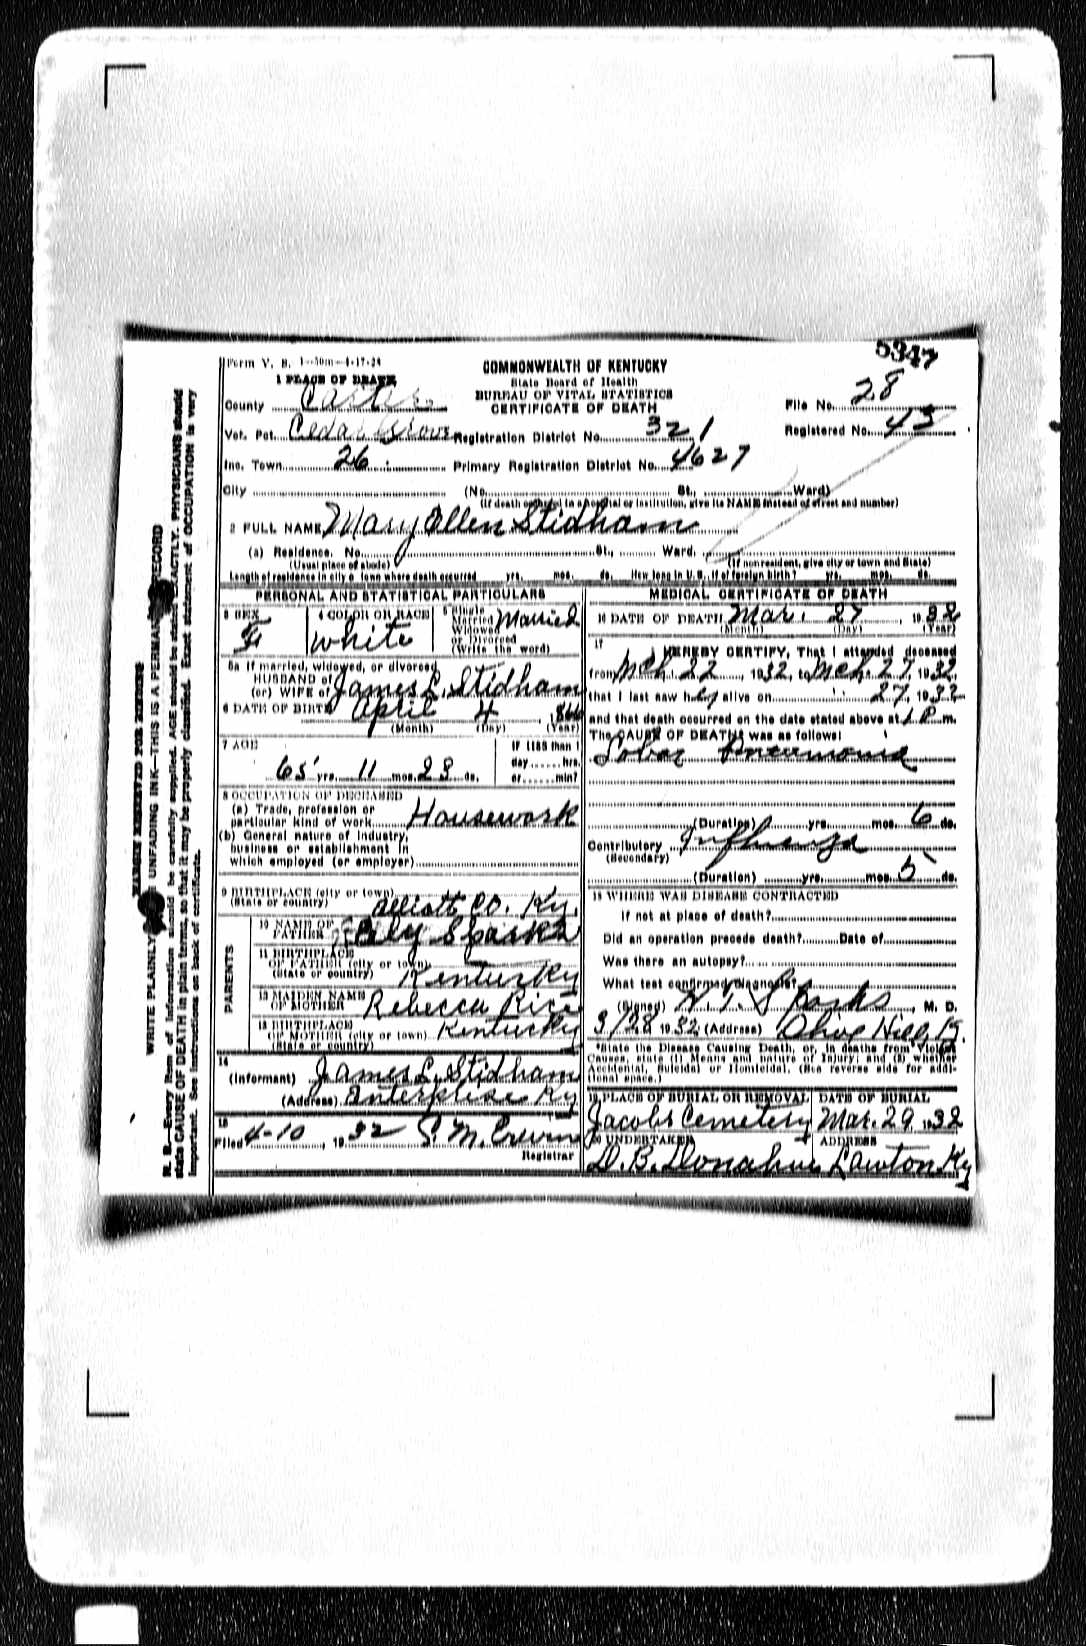 5347
Form V. S. 1—50m—4-17-28
COMMONWEALTH OF KENTUCKY
State Board of Health
BUREAU OF VITAL STATISTICS
CERTIFICATE OF DEATH
1 PLACE OF DEATH
County Carter
File No. 28
Vot. Pct. Cedar Grove Registration District No. 321
Registered No. 43
Inc. Town 26 Primary Registration District No. 4627
City (No. St., Ward)
(If death occurred in a hospital or institution, give its NAME instead of street and number)
2 FULL NAME Mary Ellen Stidham
(a) Residence. No. St., Ward.
(Usual place of abode) (If nonresident, give city or town and State)
Length of residence in city or town where death occurred yrs. mos. ds. How long in U. S., if of foreign birth? yrs. mos. ds.
PERSONAL AND STATISTICAL PARTICULARS
3 SEX
F
4 COLOR OR RACE
White
5 Single
Married
Widowed
or Divorced
(Write the word)
Married
5a If married, widowed, or divorced
HUSBAND of
(or) WIFE of James L. Stidham
6 DATE OF BIRTH April 4, 1866
(Month) (Day) (Year)
7 AGE
65 yrs. 11 mos. 23 ds.
If LESS than 1
day hrs.
or min?
8 OCCUPATION OF DECEASED
(a) Trade, profession or
particular kind of work Housework
(b) General nature of industry,
business or establishment in
which employed (or employer)
9 BIRTHPLACE (city or town)
(State or country) Elliott Co. Ky.
PARENTS
10 NAME OF
FATHER Sparks
11 BIRTHPLACE
OF FATHER (city or town)
(State or country) Kentucky
12 MAIDEN NAME
OF MOTHER Rebecca Rice
13 BIRTHPLACE
OF MOTHER (city or town) Kentucky
(State or country)
14
(Informant) James L. Stidham
(Address) Enterprise Ky
15
Filed 4-10, 1932 S. M. Erwin
Registrar
MEDICAL CERTIFICATE OF DEATH
16 DATE OF DEATH Mar. 27, 1932
(Month) (Day) (Year)
17
I HEREBY CERTIFY, That I attended deceased
from Mch. 22, 1932, to Mch, 27, 1932,
that I last saw her alive on " 27, 1932
and that death occurred on the date stated above at 1 P. m.
The CAUSE OF DEATH* was as follows:
Lobar Pneumonia
(Duration) yrs. mos. 6 ds.
Contributory Influenza
(Secondary)
(Duration) yrs. mos. 5 ds.
18 WHERE WAS DISEASE CONTRACTED
If not at place of death?
Did an operation precede death? Date of
Was there an autopsy?
What test confirmed diagnosis?
(Signed) H. T. Sparks, M. D.
3/28 1932 (Address) Olive Hill, Ky.
*State the Disease Causing Death, or, in deaths from Violent
Causes, state (1) Means and Nature of Injury; and (2) whether
Accidental, Suicidal or Homicidal. (See reverse side for addi-
tional space.)
19 PLACE OF BURIAL OR REMOVAL
Jacobs Cemetery
DATE OF BURIAL
Mar. 29, 1932
20 UNDERTAKER
D. B. Donahue
ADDRESS
Lawton Ky
MARGIN RESERVED FOR BINDING
WRITE PLAINLY UNFADING INK—THIS IS A PERMANENT RECORD
N. B.—Every item of information should be carefully supplied. AGE should be stated EXACTLY. PHYSICIANS should
state CAUSE OF DEATH in plain terms, so that it may be properly classified. Exact statement of OCCUPATION is very
important. See instructions on back of certificate.